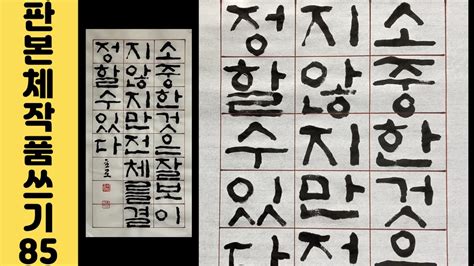 판본체작품쓰기85
소중한것은잘보이
지않지만전체를결
정할수있다
소중한것은
지않지만전
정할수있다